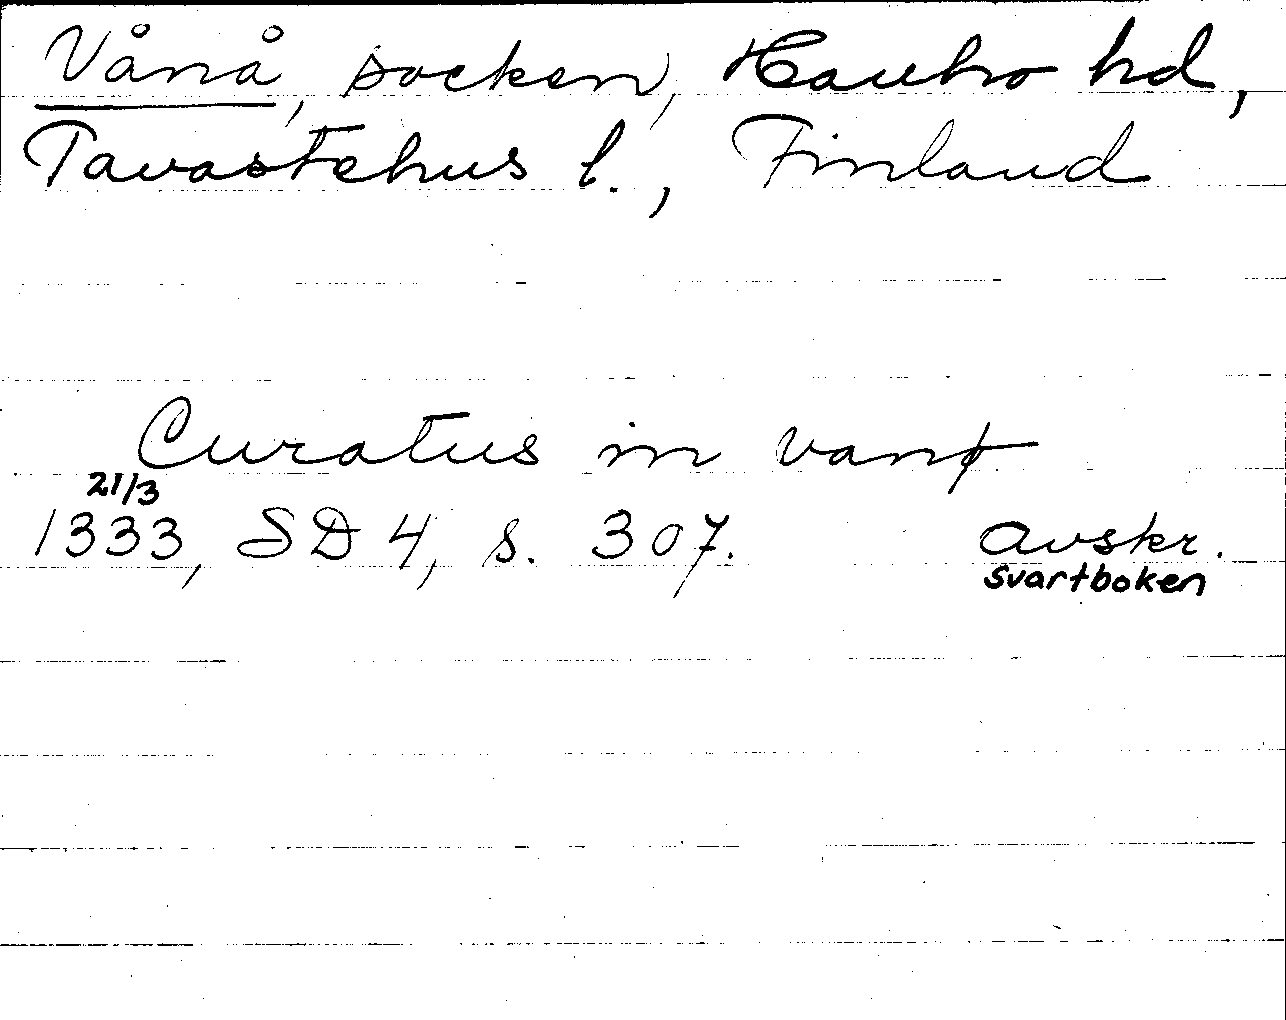 Vånå, socken, Hauho hd,
Tavastehus l., Finland
Curatus in vanø
21/3
1333, SD 4, s. 307. avskr.
svartboken